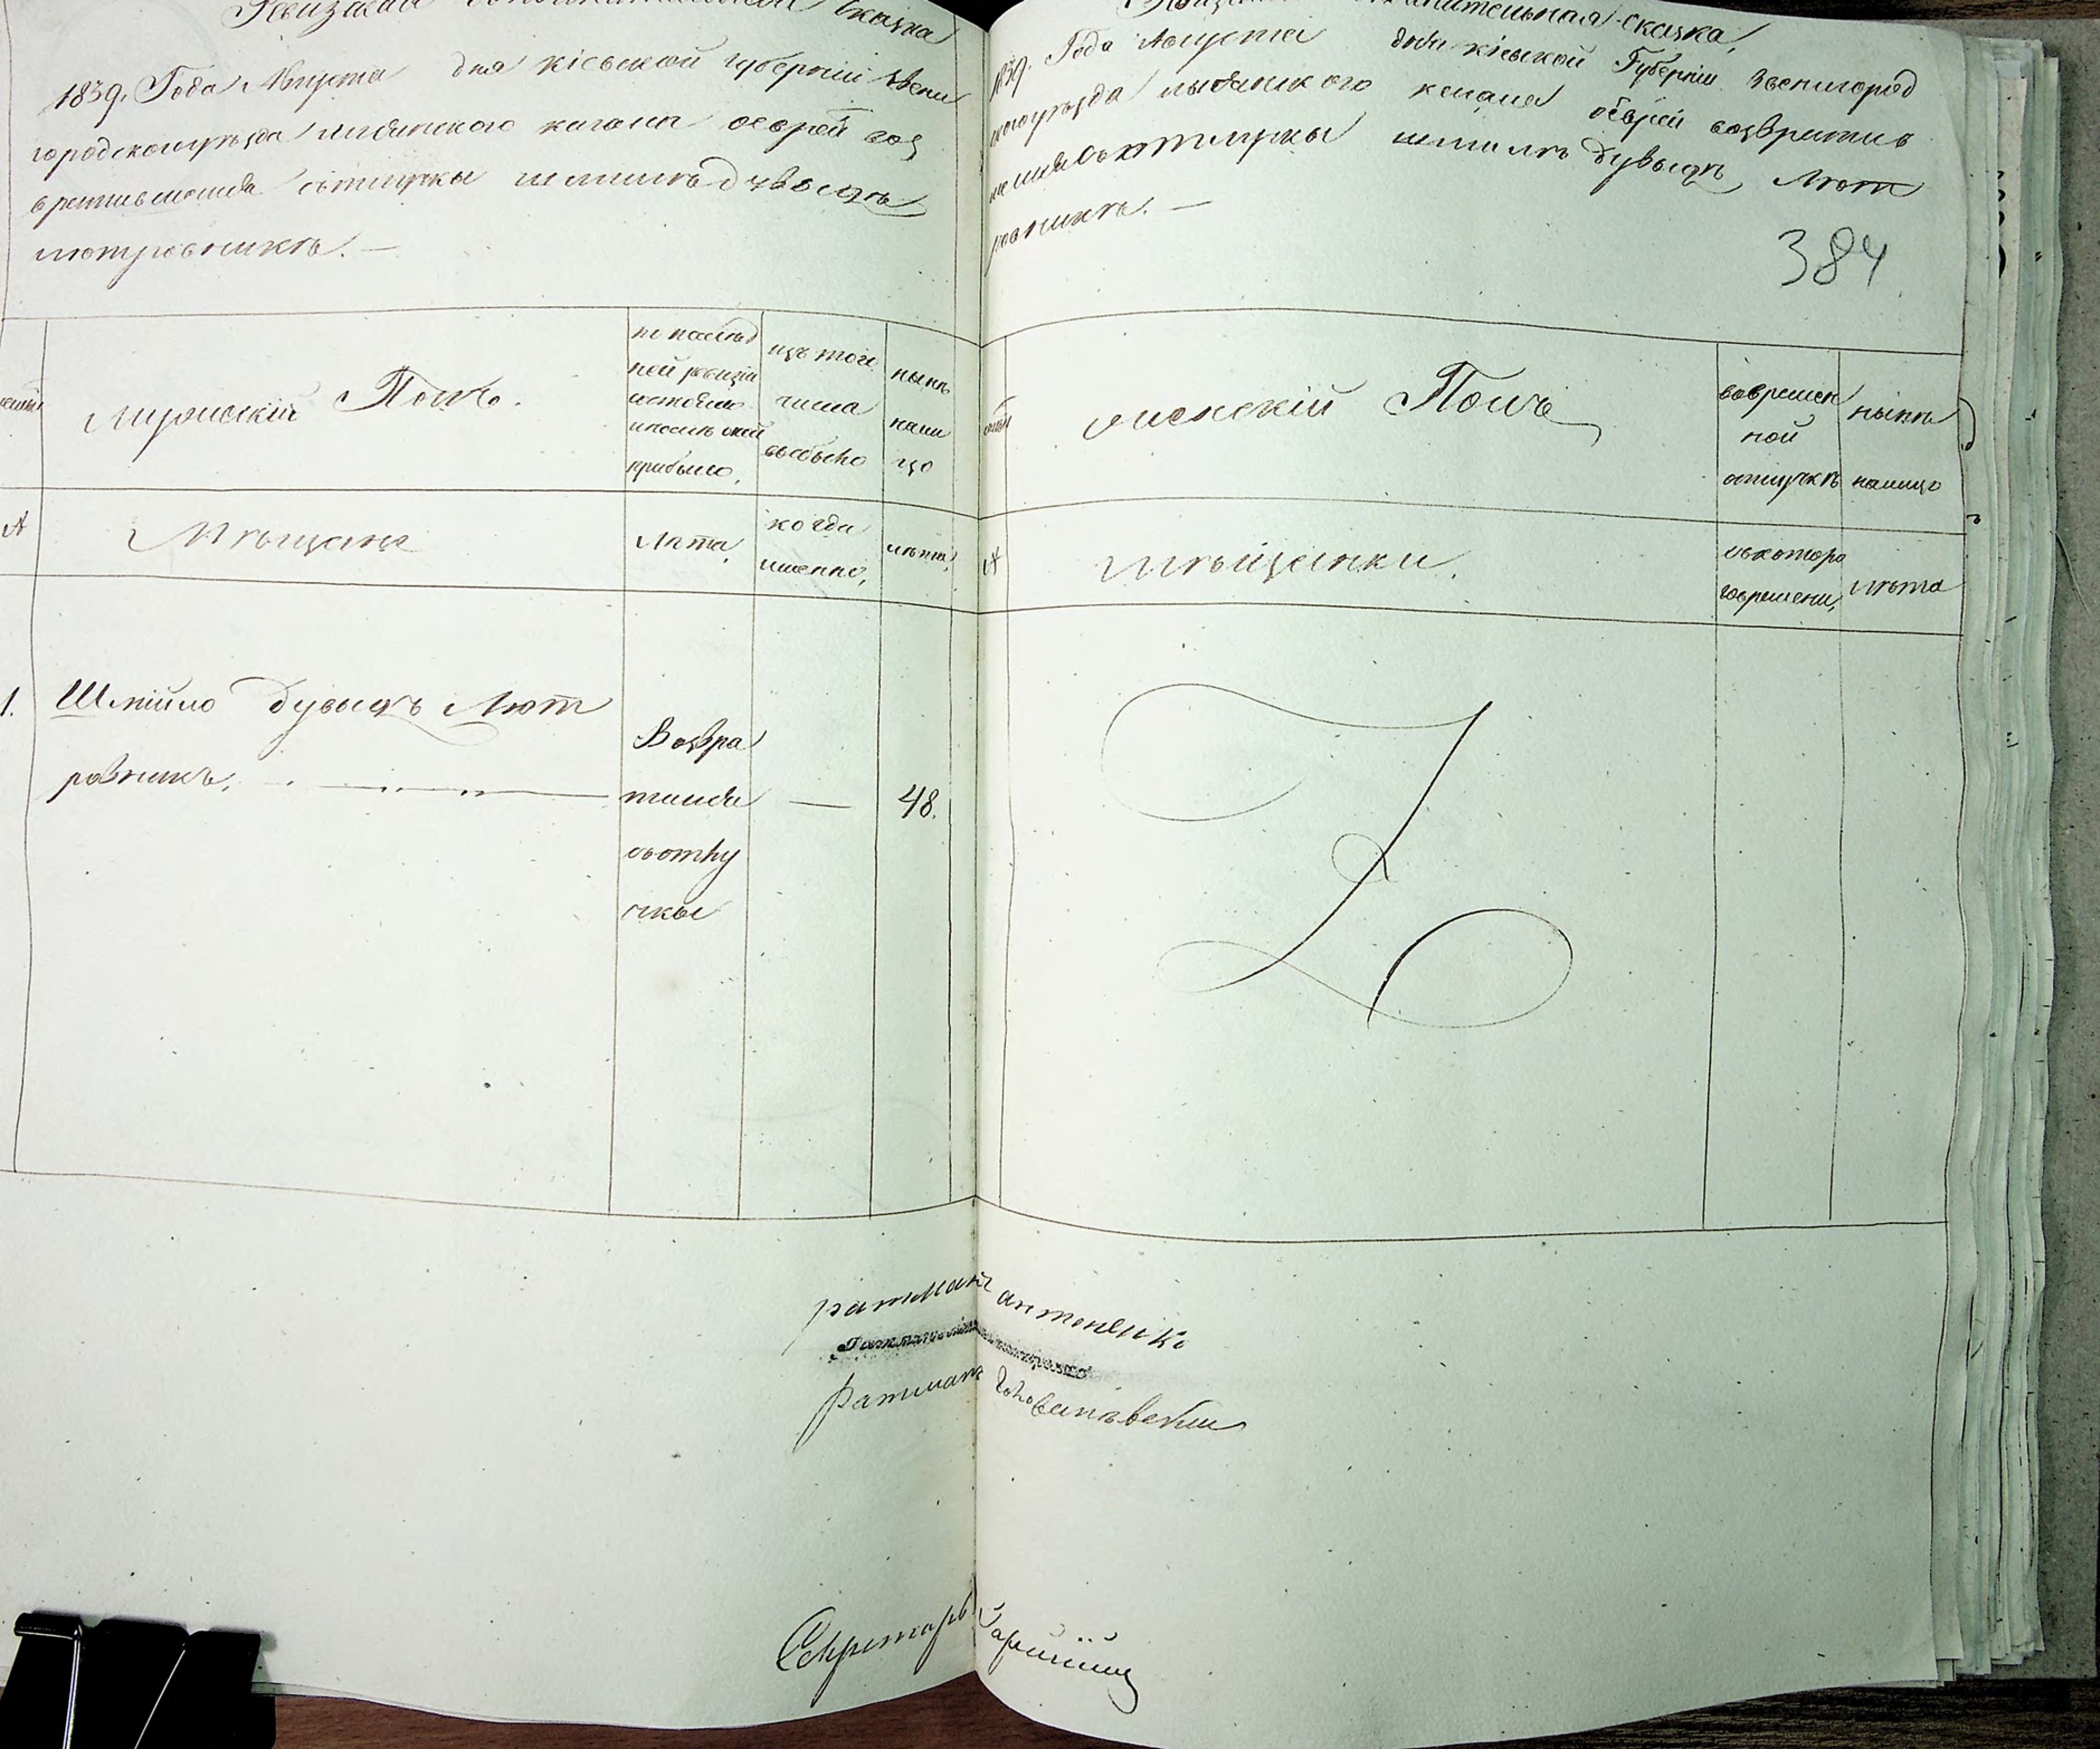 Ревизкая дополнительная Сказка
1839. Года Августа дня кіевской губерніи Звени
городского уезда лисянского кагала оеврей воз
вратившемся сотлучки шмиле дувыдъ
лютровникъ. —
мужескій Полъ.
по послед
ней ревизіи
состояло
и после оной
прибыло,
изъ того
числа
выбыло
ныне
нали
цо
А
Мещане
Лета,
когда
именно,
лета,
1.
Шмійло дувыдъ Лют
ровникъ,
Возвра
тился
сотлу
чки
—
48.
Сказка,
1839. Года Августа дня кіевской Губерніи Звенигород
ского уезда лысянского кагала оеврей возвратив
шемся сотлучки шмиле дувыдъ Лют
ровникъ. —
384
женскій Полъ
вовремен
ной
отлучке
ныне
налицо
А
мещанки.
скоторо
говремени,
лета
ратманъ антоненко
Ратманъ
Секретарь